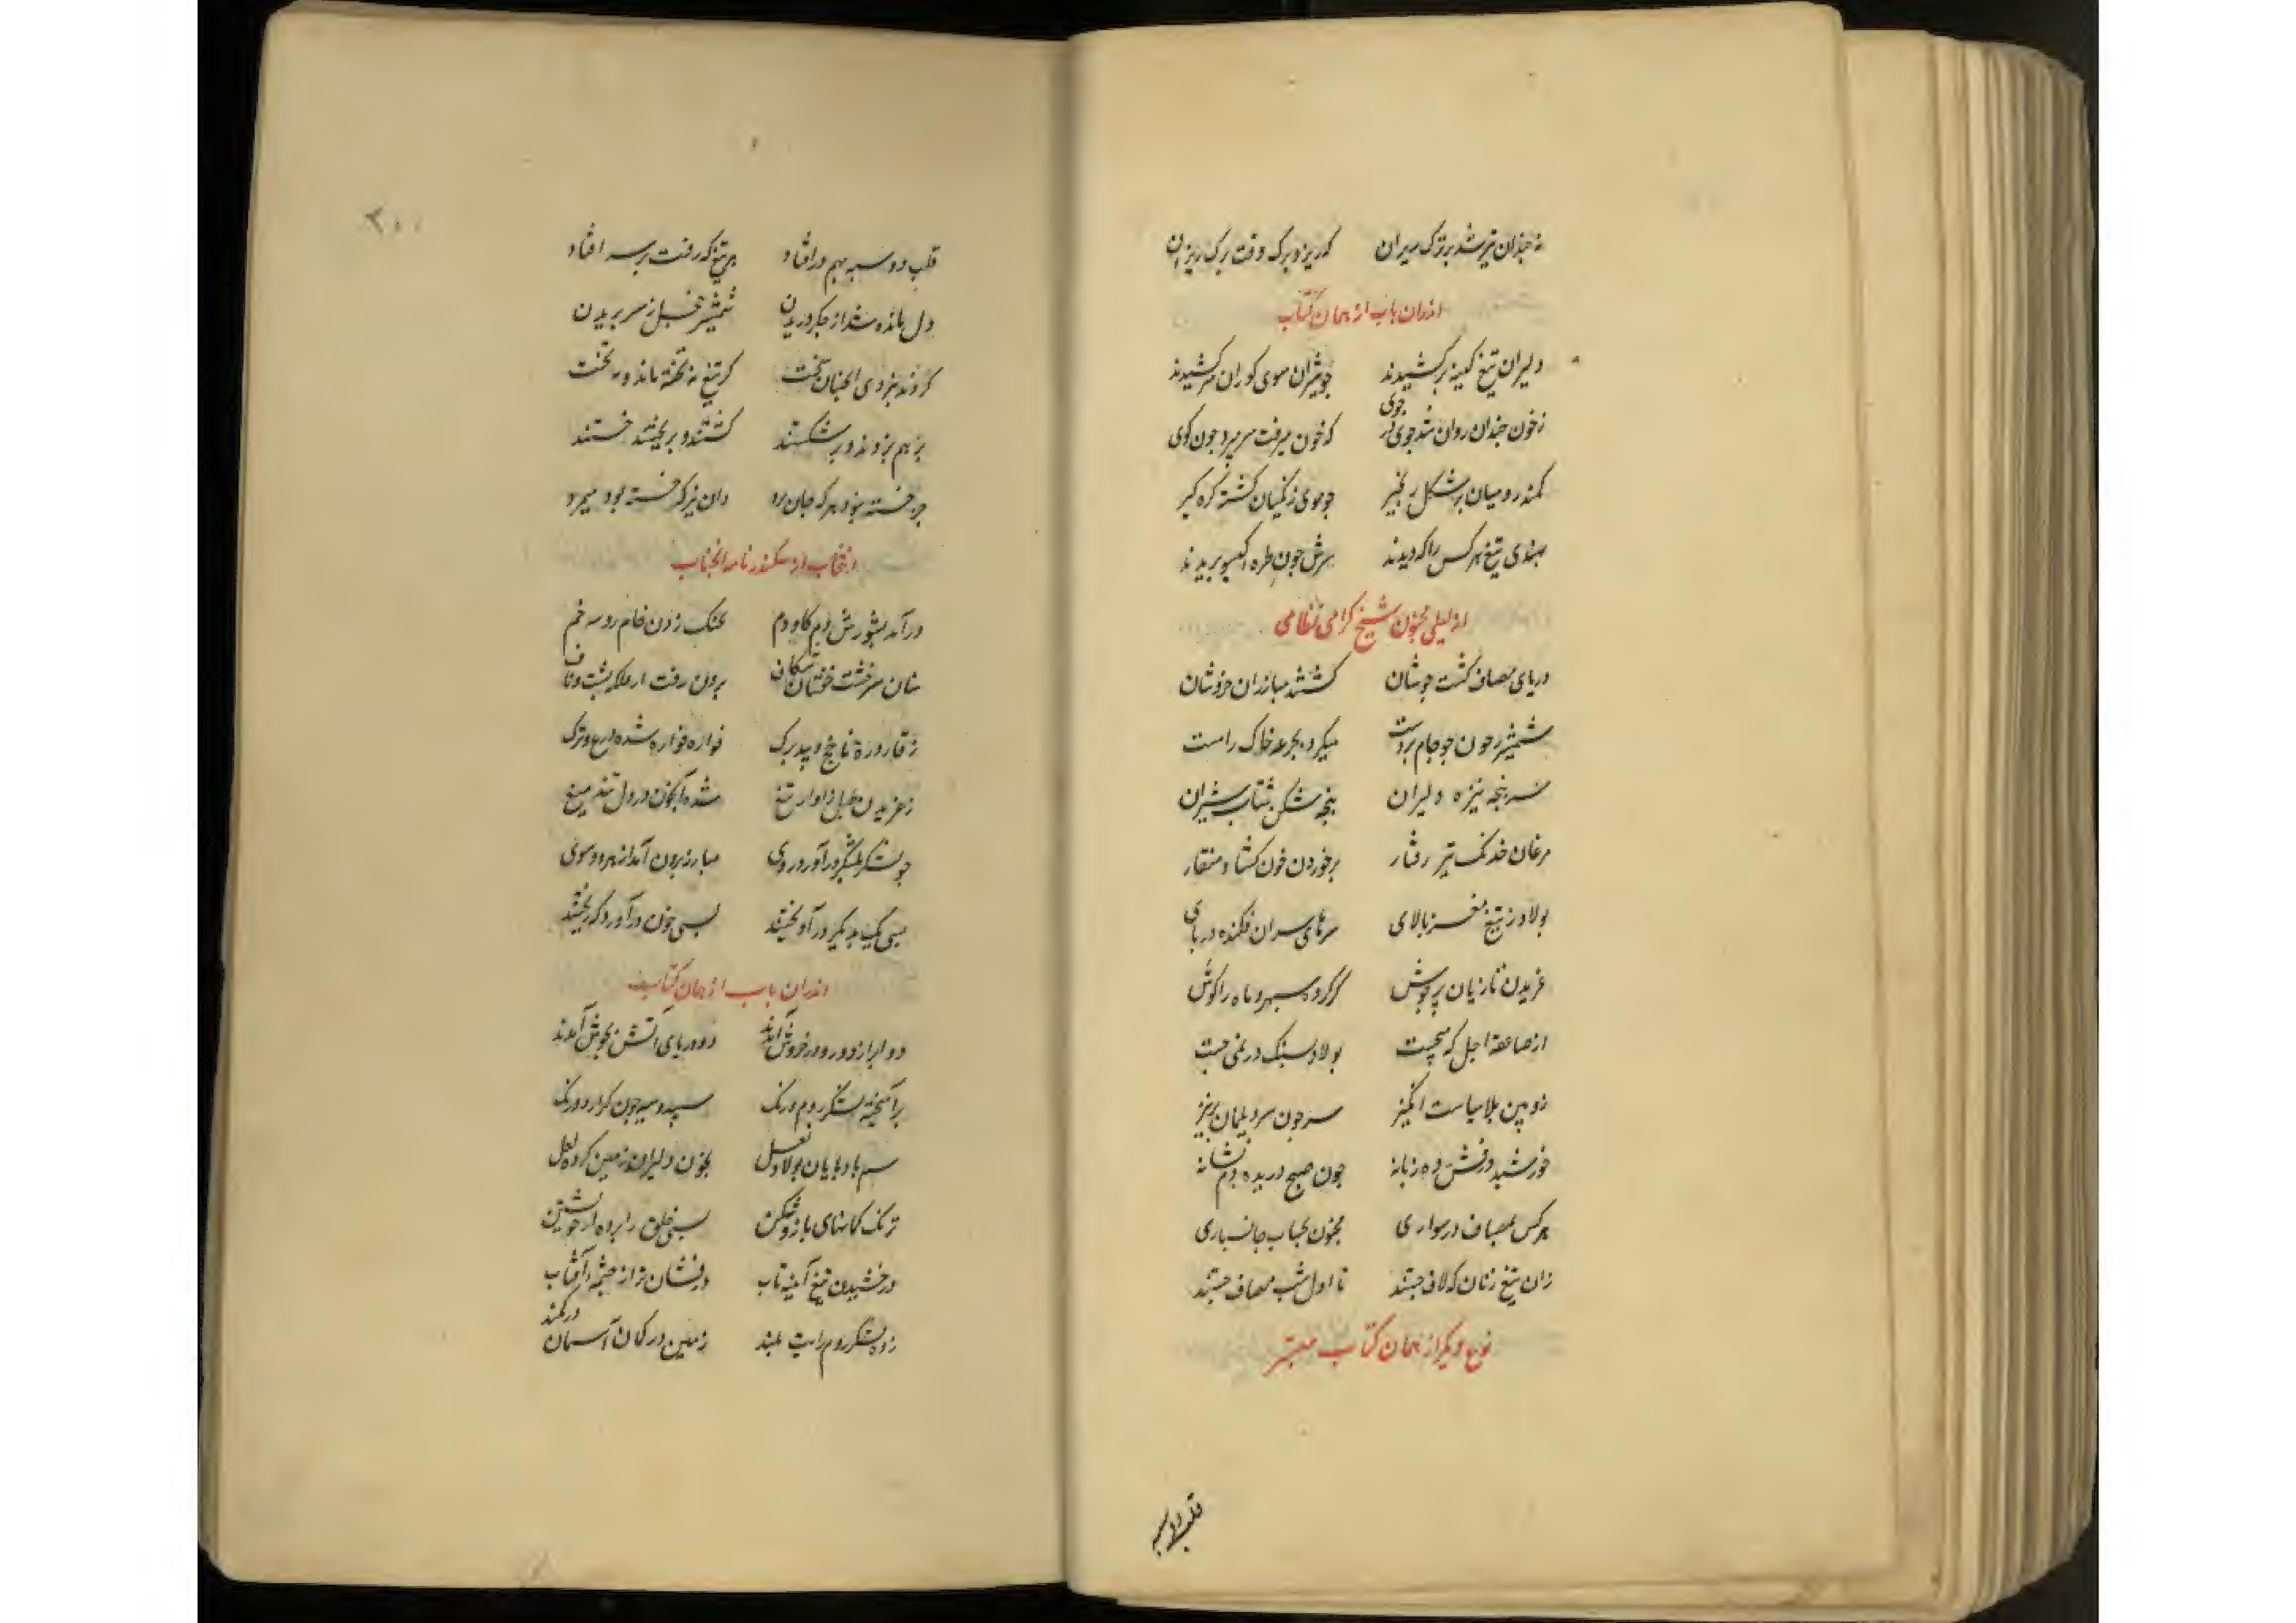 نه چندان تیر شد بر ترک ریزان که ریزد برک وقت برک ریزان
اندران باب از همان کتاب
دلیران تیغ کینه برکشیدند چو شیران سوی کوران سر کشیدند
زخون چندان روان شد جوی در جوی که خون میرفت سر میبرد چون کوی
کمند رومیان بر شکل زنجیر چو موی زنکیان کشته کره کیر
بهندی تیغ هر کس را که دیدند سرش چون طره کیسو بریدند
از لیلی مجنون شیخ کرامی نظامی
دریای مصاف کشت جوشان کشتند مبارزان خروشان
شمشیر زخون چو جام بر دست میکرد بجرعه خاک را مست
سر پنجه نیزه دلیران پنجه شکن شتاب شیران
مرغان خدنک تیز رفتار برخوردن خون کشاد منقار
پولاد ز تیغ مغز پالای سرهای سران فکنده در پای
غریدن تازیان پر جوش کر کرده سپهر و ماه را کوش
از صاعقه اجل که میجست پولاد سنک در نمی جست
زوبین بلا سیاست انکیز سر چون سر دیلمان
خورشید درفش ده زبانه چون صبح دریده دم نشانه
هر کس بمصاف در سواری مجنون بحساب جانسپاری
زان تیغ زنان که لاف جستند تا اول شب مصاف جستند
نوع دیکر از همان کتاب معتبر
قلب دو سپه
۲۰۰
قلب دو سپه بهم در افتاد هر تیغ که رفت بر سر افتاد
دل مانده شد از جکر دریدن شمشیر خجل ز سر بریدن
کردند نبردی آنچنان سخت کز تیغ نه تخته ماند و نه تخت
بر هم بزدند و بر شکستند کشتند و بریختند خستند
جز خسته نبود هر که جان برد وان نیز که خسته بود میمرد
انتخاب از سکندر نامه انجناب
درآمد بشورش دم کاو دم بخنک زدن خام رویینه خم
سنان سر خشت خفتان شکاف برون رفت از فلکه پشت و ناف
ز قاروره ناچخ و بید برک قواره قواره شده درع و ترک
ز غریدن زاوار تیغ شده آب خون در دل تند میغ
چو لشکر بلشکر درآورد روی مبارز برون آمد از هر دو سوی
بسی یک بیکدیکر درآویختند بسی خون درآورد که ریختند
اندران باب از همان کتاب
دو ابر از دو رو در خروش آمدند دو دریای آتش بجوش آمدند
برآمیخته لشکر روم و زنک سپید و سیه چون کراز دو رنک
سم بادپایان پولاد نعل بخون دلیران زمین کرده لعل
ترنک کمانهای بازو شکن بسی خلق را برده از خویشتن
درخشیدن تیغ آینه تاب درفشان تر از چشمه آفتاب
زده لشکر روم رایت بلند زمین در کمان آسمان در کمند